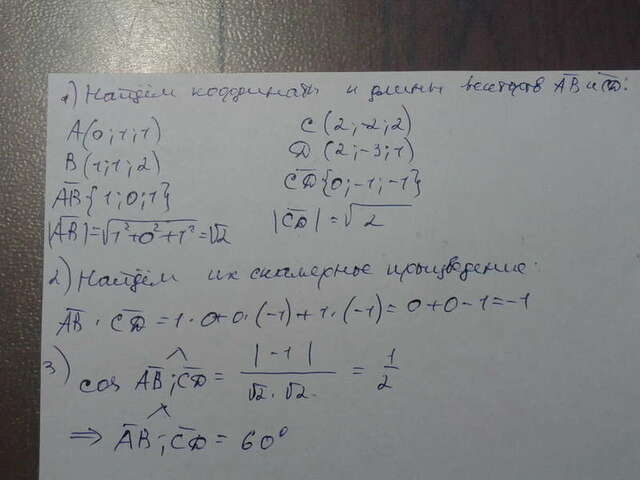 1) Найдём координаты и длины векторов A̅B̅ и C̅D̅:
A(0;1;1) C(2;-2;2)
B(1;1;2) D(2;-3;1)
A̅B̅{1;0;1} C̅D̅{0;-1;-1}
|A̅B̅|=√(1²+0²+1²)=√2 |C̅D̅|=√2
2) Найдём их скалярное произведение:
A̅B̅ · C̅D̅ = 1·0+0·(-1)+1·(-1)=0+0-1=-1
3) cos A̅B̅;^C̅D̅ = |-1| / (√2·√2.) = 1/2
⇒ A̅B̅;^C̅D̅ = 60°